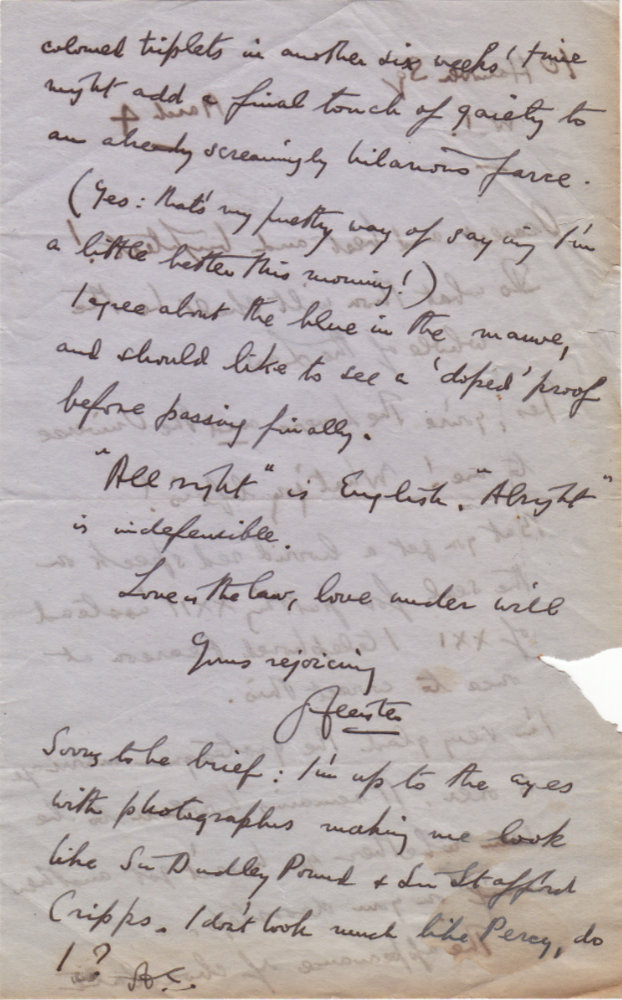 coloured triplets in another six weeks' time
might add a final touch of gaiety to
an already screamingly hilarious farce.
(Yes: that's my pretty way of saying I'm
a little better this morning!)
I agree about the blue in the mauve,
and should like to see a 'doped' proof
before passing finally.
"All right" is English. "Alright"
is indefensible.
Love is the law, love under will
Yours rejoicing
Sorry to be brief: I'm up to the eyes
with photographs making me look
like Sir Dudley Pound & Sir Stafford
Cripps. I don't look much like Percy, do
I?
A.C.